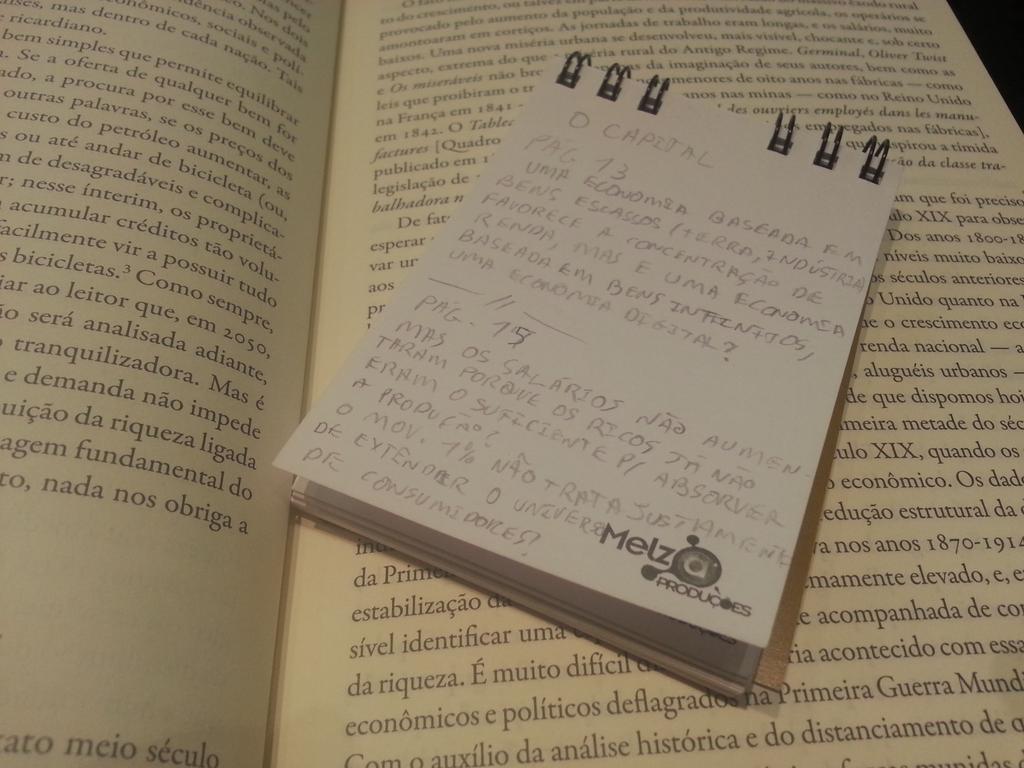 dentro de cada nação. Tais
ricardiano.
bem simples que permite equilibrar
. Se a oferta de qualquer bem for
a procura por esse bem deve
outras palavras, se os preços dos
custo do petróleo aumentar, as
s ou até andar de bicicleta (ou,
m de desagradáveis e complica-
r; nesse ínterim, os proprietá-
acumular créditos tão volu-
facilmente vir a possuir tudo
s bicicletas.³ Como sempre,
iar ao leitor que, em 2050,
ão será analisada adiante,
tranquilizadora. Mas é
e demanda não impede
uição da riqueza ligada
agem fundamental do
to, nada nos obriga a
tato meio século
provocado pelo aumento da população e da produtividade agrícola, os operários se
amontoaram em cortiços. As jornadas de trabalho eram longas, e os salários, muito
baixos. Uma nova miséria urbana se desenvolveu, mais visível, chocante e, sob certo
aspecto, extrema do que a miséria rural do Antigo Regime. Germinal, Oliver Twist
e Os miseráveis não bro da imaginação de seus autores, bem como as
leis que proibiram o tr menores de oito anos nas fábricas — como
na França em 1841 anos nas minas — como no Reino Unido
em 1842. O Tablea des ouvriers employés dans les manu-
factures [Quadro empregados nas fábricas],
publicado em 1 que inspirou a tímida
legislação de ão da classe tra-
balhadora n
De fat um que foi preciso
esperar ulo XIX para obse
var ur Dos anos 1800-18
aos níveis muito baixo
pr os séculos anteriores
Unido quanto na
ue o crescimento eco
renda nacional — a
, aluguéis urbanos —
de que dispomos hoj
meira metade do séc
ulo XIX, quando os
o econômico. Os dado
edução estrutural da
va nos anos 1870-1914
ind mamente elevado, e, e
da Prime e acompanhada de con
estabilização da ria acontecido com essa
sível identificar uma
da riqueza. É muito difícil d
econômicos e políticos deflagrados na Primeira Guerra Mundi
Com o auxílio da análise histórica e do distanciamento de q
O CAPITAL
PÁG. 13
UMA ECONOMIA BASEADA EM
BENS ESCASSOS (TERRA, INDÚSTRIA)
FAVORECE A CONCENTRAÇÃO DE
RENDA, MAS E UMA ECONOMIA
BASEADA EM BENS INFINITOS,
UMA ECONOMIA DIGITAL?
— // —
PÁG. 15
MAS OS SALÁRIOS NÃO AUMEN-
TARAM PORQUE OS RICOS JÁ NÃO
ERAM O SUFICIENTE P/ ABSORVER
A PRODUÇÃO?
O MOV. 1% NÃO TRATA JUSTAMENTE
DE EXTENDER O UNIVERSO
DE CONSUMIDORES?
Melzo
PRODUÇÕES